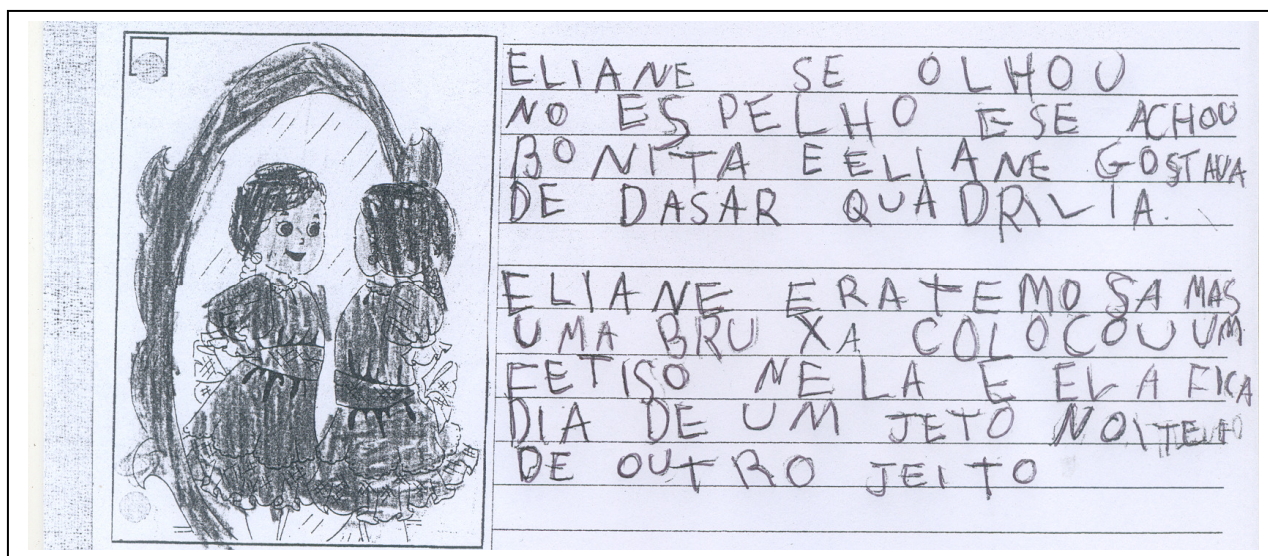 ELIANE SE OLHOU
NO ESPELHO ESE ACHOU
BONITA EELIANE GOSTAVA
DE DASAR QUADRILIA.
ELIANE ERA TEMOSA MAS
UMA BRUXA COLOCOU UM
FETISO NELA E ELA FICA
DIA DE UM JETO NOITE
DE OUTRO JEITO